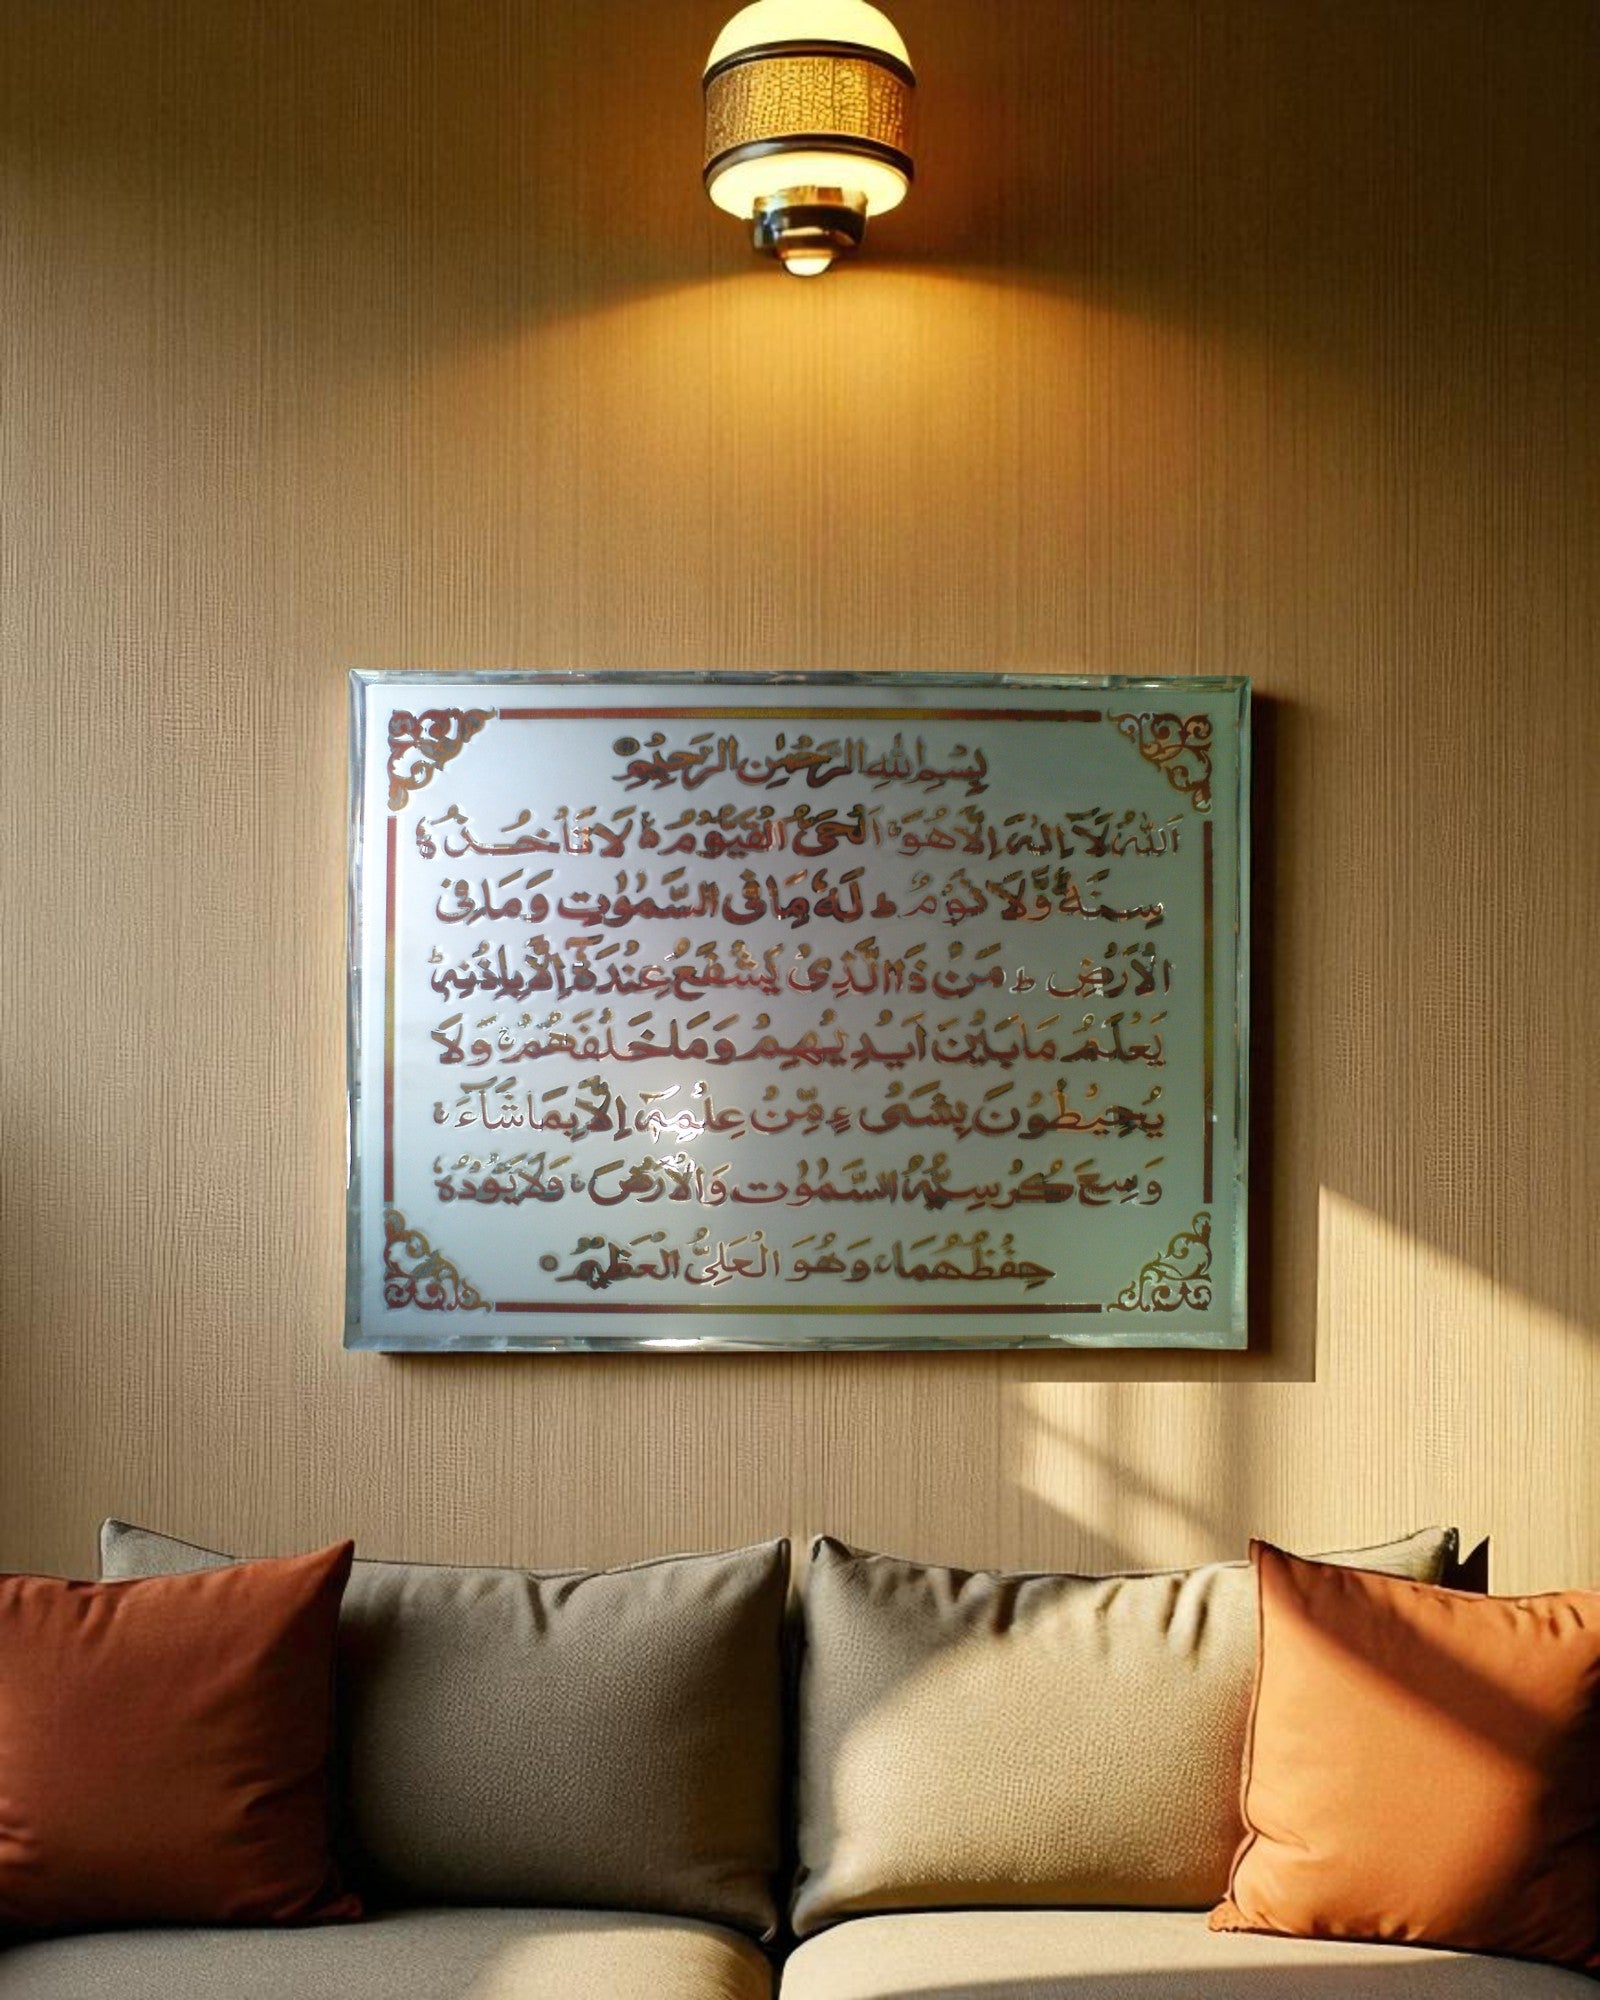 بِسْمِ اللّٰهِ الرَّحْمٰنِ الرَّحِيْمِ
اَللّٰهُ لَآ اِلٰهَ اِلَّا هُوَ ۚ اَلْحَىُّ الْقَيُّوْمُ ۚ لَا تَاْخُذُهٗ
سِنَةٌ وَّلَا نَوْمٌ ؕ لَهٗ مَا فِى السَّمٰوٰتِ وَمَا فِى
الْاَرْضِ ؕ مَنْ ذَا الَّذِىْ يَشْفَعُ عِنْدَهٗٓ اِلَّا بِاِذْنِهٖ ؕ
يَعْلَمُ مَا بَيْنَ اَيْدِيْهِمْ وَمَا خَلْفَهُمْ ۚ وَلَا
يُحِيْطُوْنَ بِشَىْءٍ مِّنْ عِلْمِهٖٓ اِلَّا بِمَا شَآءَ ۚ
وَسِعَ كُرْسِيُّهُ السَّمٰوٰتِ وَالْاَرْضَ ۚ وَلَا يَئُوْدُهٗ
حِفْظُهُمَا ۚ وَهُوَ الْعَلِىُّ الْعَظِيْمُ